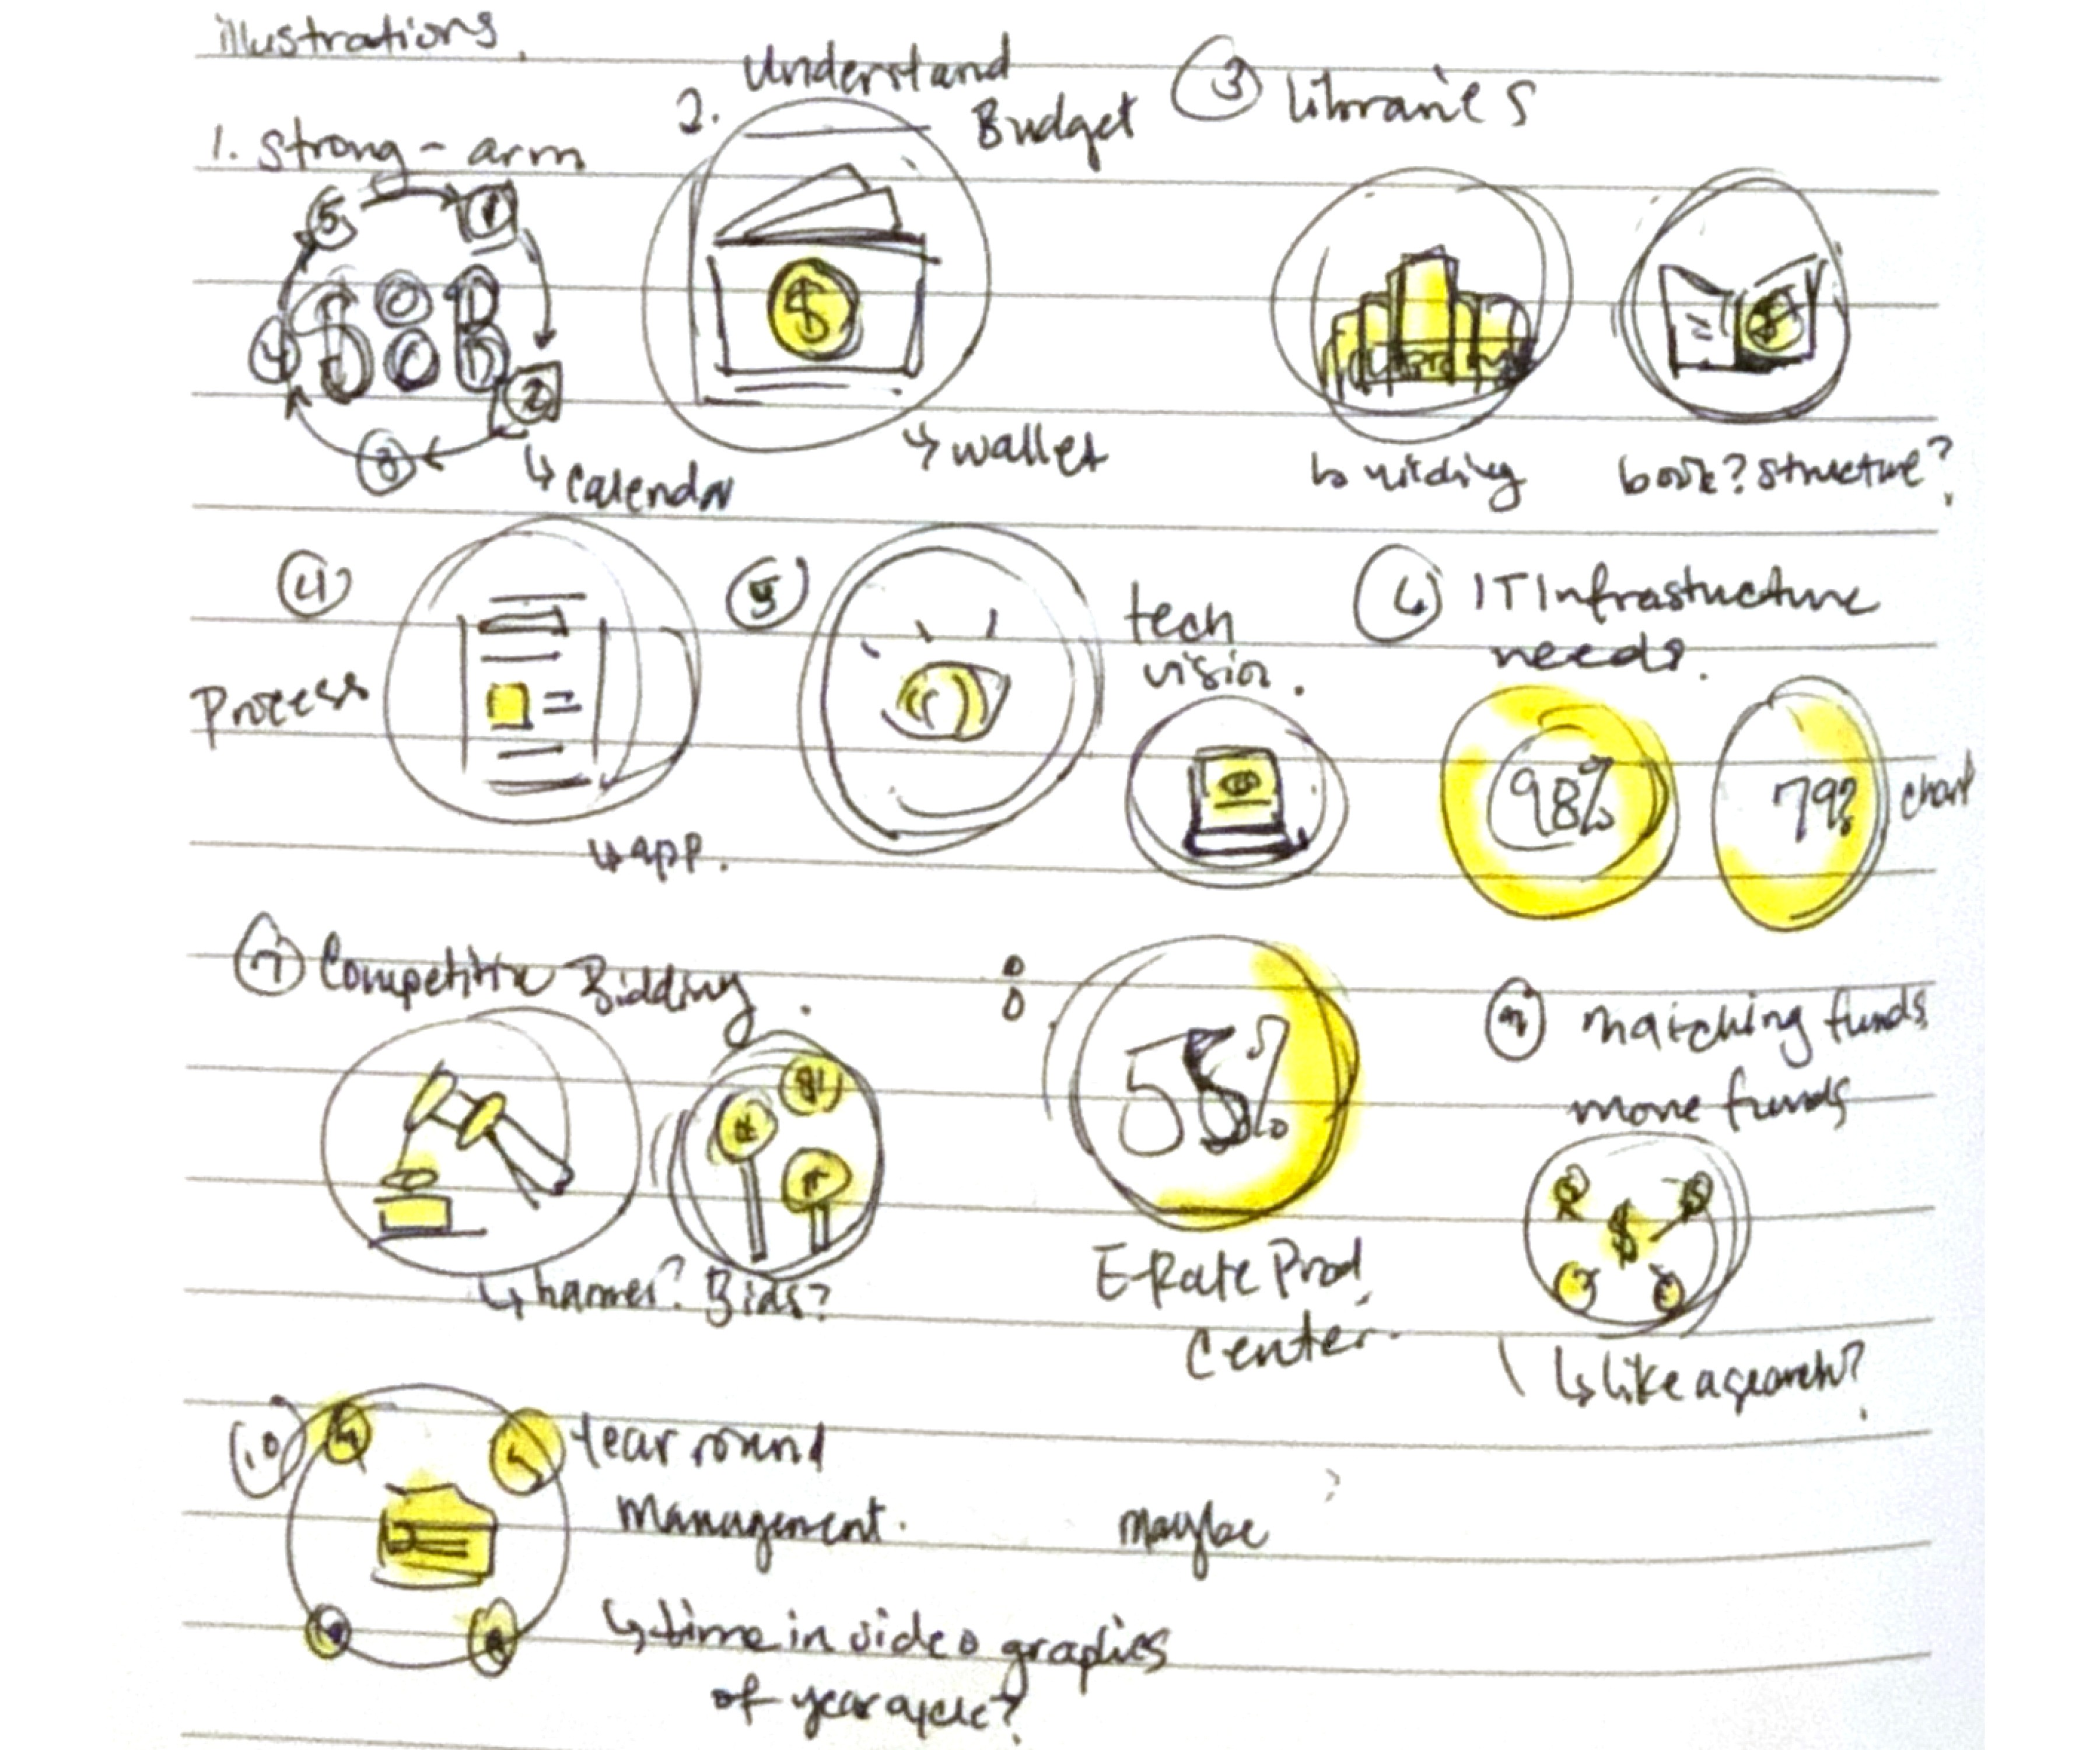 illustrations.
1. strong-arm
5
1
4
2
3
↳ calendar
2. Understand
Budget
$
↳ wallet
③ libraries
building
$
book? structure?
④
Process
↳ app.
⑤
tech
vision.
⑥ IT Infrastucture
needs.
98%
79%
chart
⑦ Competitive Bidding.
↳ hammer? Bids?
8
58%
E-Rate Prod
Center.
⑨ matching funds
more funds
$
↳ like a search?
10
Year round
Management.
maybe
↳ time in video graphics
of year cycle?